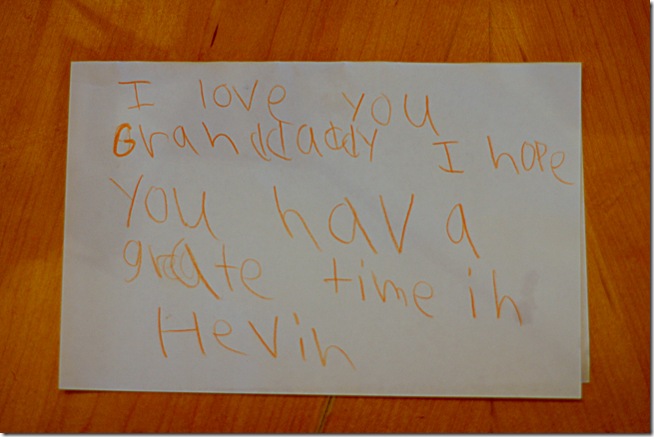 I love you
Granddaddy I hope
you hav a
greate time in
Hevin